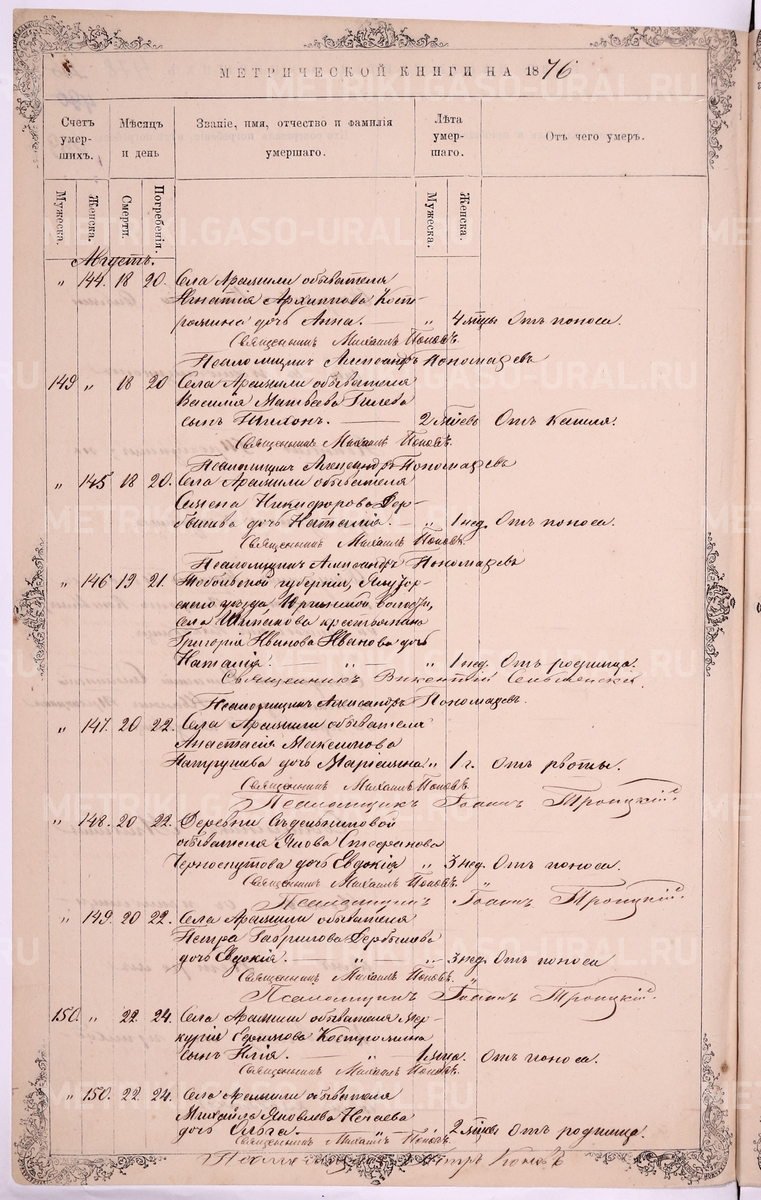 МЕТРИЧЕСКОЙ КНИГИ НА 1876
Счетъ умер-шихъ.
Мѣсяцъ и день
Званіе, имя, отчество и фамилія умершаго.
Лѣта умер-шаго.
Отъ чего умеръ.
Мужеска. Женска. Смерти. Погребенія. Мужеска. Женска.
Августъ.
" 144. 18 20. Села Арамили обывателя
Игнатія Архиппова Кост-
ромина дочь Анна. — " 4 мѣцы Отъ поноса.
Священникъ Михаилъ Поповъ.
Псаломщикъ Александръ Пономаревъ
149 " 18 20 Села Арамили обывателя
Василія Матвѣева Гилева
сынъ Тихонъ. — 2 Отъ кашля.
Священникъ Михаилъ Поповъ.
Псаломщикъ Александръ Пономаревъ
" 145 18 20. Села Арамили обывателя
Семена Никифорова Дер-
бышева дочь Наталія. — " 1 нед. Отъ поноса.
Священникъ Михаилъ Поповъ.
Псаломщикъ Александръ Пономаревъ
" 146 19 21. Тобольской губерніи, Ялутор-
скаго уѣзда, волости,
села крестьянина
Григорія Иванова Иванова дочь
Наталія. — " — " 1 нед. Отъ родимца.
Священникъ Викентій
Псаломщикъ Александръ Пономаревъ.
" 147. 20 22. Села Арамили обывателя
Анастасія Максимова
Патрушева дочь " 1 г. отъ рвоты.
Священникъ Михаилъ Поповъ.
Псаломщикъ Іоаннъ Троицкій.
" 148. 20 22. Деревни обывателя Якова Стефанова
Черноскутова дочь Евдокія " 3 нед. Отъ поноса.
Священникъ Михаилъ Поповъ.
Псаломщикъ Іоаннъ Троицкій
" 149. 20 22. Села Арамили обывателя
Петра Гаврилова Дербышева
дочь Евдокія. — " — " 3 нед. Отъ поноса
Священникъ Михаилъ Поповъ.
Псаломщикъ Іоаннъ Троицкій.
150. " 22. 24. Села Арамили обывателя Мер-
курія Ефимова Костромина
сынъ Илія. — " 1 мѣца. Отъ поноса.
Священникъ Михаилъ Поповъ.
" 150. 22. 24. Села Арамили обывателя
Михаила Яковлева Нечаева
дочь Ольга. — " 2 мѣцы Отъ родимца.
Священникъ Михаилъ Поповъ.
Псаломщикъ Петръ Поповъ
METRIKI.GASO-URAL.RU